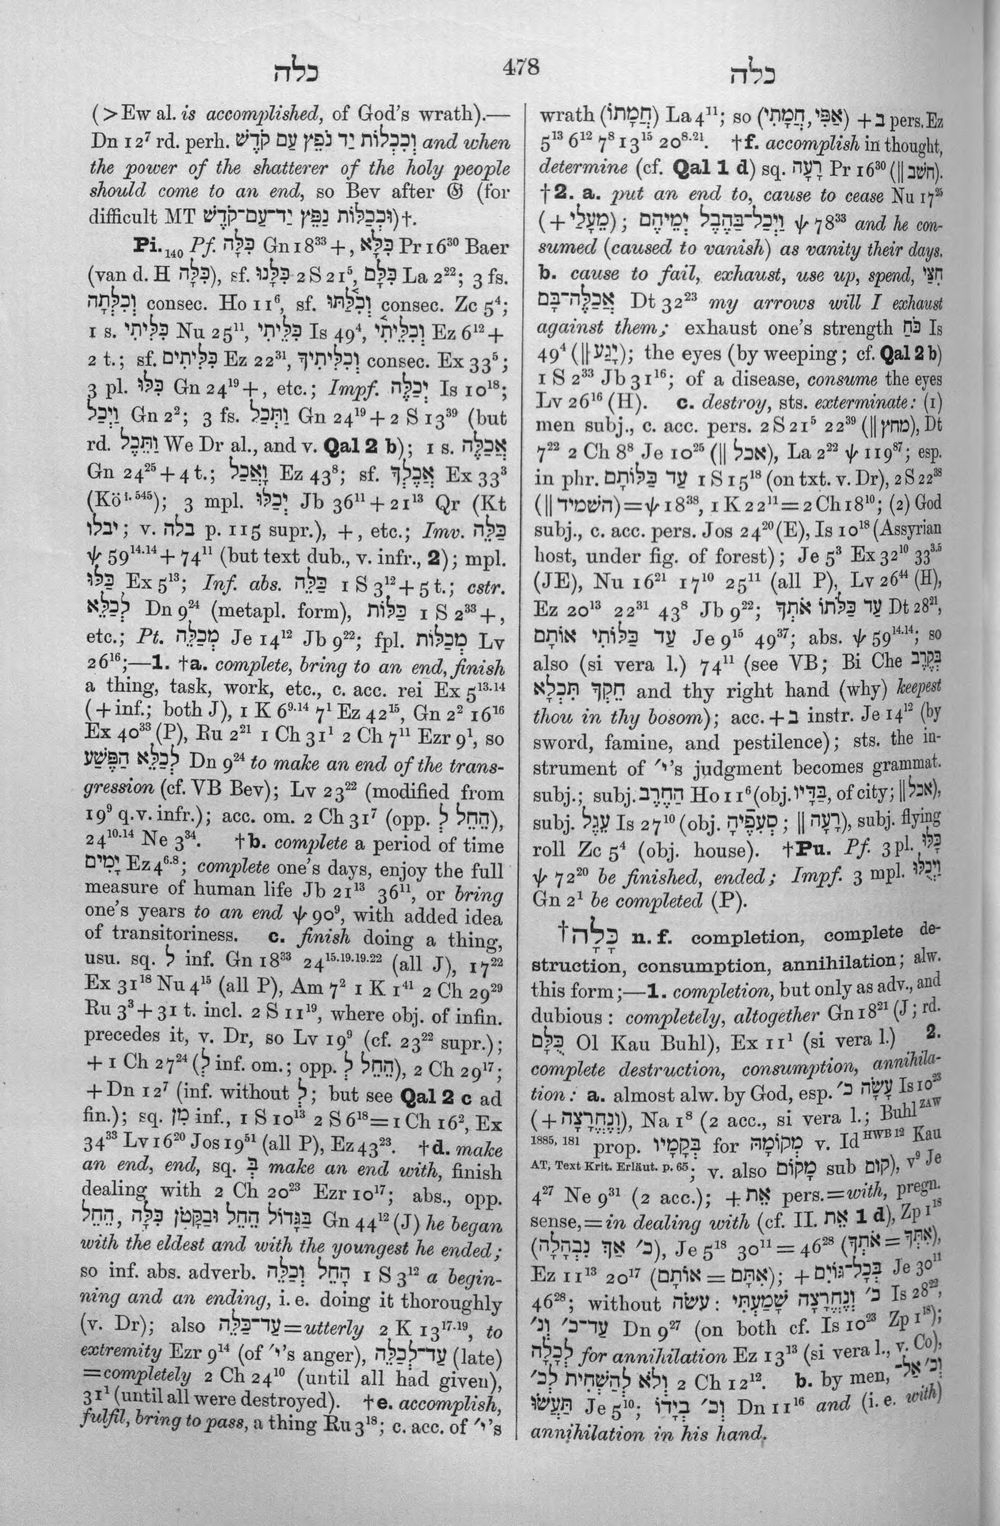 כלה
478
כלה
(>Ew al. is accomplished, of God's wrath).—
Dn 12⁷ rd. perh. וְכִכְלוֹת יַד נֹפֵץ עַם קֹדֶשׁ and when
the power of the shatterer of the holy people
should come to an end, so Bev after 𝔊 (for
difficult MT וּכְכַלּוֹת נַפֵּץ יַד־עַם־קֹדֶשׁ)†.
Pi.₁₄₀ Pf. כִּלָּה Gn 18³³ +, כִּלָּא Pr 16³⁰ Baer
(van d. H כִּלָּה), sf. כִּלָּנוּ 2 S 21⁵, כִּלָּם La 2²²; 3 fs.
וְכִלְּתָה consec. Ho 11⁶, sf. וְכִלַּתּוּ consec. Zc 5⁴;
1 s. כִּלֵּיתִי Nu 25¹¹, כִּלֵּיתִי Is 49⁴, וְכִלֵּיתִי Ez 6¹² +
2 t.; sf. כִּלִּיתִים Ez 22³¹, וְכִלִּיתִיךָ consec. Ex 33⁵;
3 pl. כִּלּוּ Gn 24¹⁹ +, etc.; Impf. יְכַלֶּה Is 10¹⁸;
וַיְכַל Gn 2²; 3 fs. וַתְּכַל Gn 24¹⁹ + 2 S 13³⁹ (but
rd. וַתֵּכֶל We Dr al., and v. Qal 2 b); 1 s. אֲכַלֶּה
Gn 24²⁵ + 4 t.; וָאֲכַל Ez 43⁸; sf. אֲכֶלְךָ Ex 33³
(Kö¹·⁵⁴⁵); 3 mpl. יְכַלּוּ Jb 36¹¹ + 21¹³ Qr (Kt
יבלו; v. בלה p. 115 supr.), +, etc.; Imv. כַּלֵּה
ψ 59¹⁴·¹⁴ + 74¹¹ (but text dub., v. infr., 2); mpl.
כַּלּוּ Ex 5¹³; Inf. abs. כַּלֵּה 1 S 3¹² + 5 t.; cstr.
לְכַלֵּא Dn 9²⁴ (metapl. form), כַּלּוֹת 1 S 2³³ +,
etc.; Pt. מְכַלֶּה Je 14¹² Jb 9²²; fpl. מְכַלּוֹת Lv
26¹⁶;—1. †a. complete, bring to an end, finish
a thing, task, work, etc., c. acc. rei Ex 5¹³·¹⁴
(+ inf.; both J), 1 K 6⁹·¹⁴ 7¹ Ez 42¹⁵, Gn 2² 16¹⁶
Ex 40³³ (P), Ru 2²¹ 1 Ch 31¹ 2 Ch 7¹¹ Ezr 9¹, so
לְכַלֵּא הַפֶּשַׁע Dn 9²⁴ to make an end of the trans-
gression (cf. VB Bev); Lv 23²² (modified from
19⁹ q.v. infr.); acc. om. 2 Ch 31⁷ (opp. הֵחֵל לְ),
24¹⁰·¹⁴ Ne 3³⁴. †b. complete a period of time
יָמִים Ez 4⁶·⁸; complete one's days, enjoy the full
measure of human life Jb 21¹³ 36¹¹, or bring
one's years to an end ψ 90⁹, with added idea
of transitoriness. c. finish doing a thing,
usu. sq. לְ inf. Gn 18³³ 24¹⁵·¹⁹·¹⁹·²² (all J), 17²²
Ex 31¹⁸ Nu 4¹⁵ (all P), Am 7² 1 K 1⁴¹ 2 Ch 29²⁹
Ru 3³ + 31 t. incl. 2 S 11¹⁹, where obj. of infin.
precedes it, v. Dr, so Lv 19⁹ (cf. 23²² supr.);
+ 1 Ch 27²⁴ (לְ inf. om.; opp. הֵחֵל לְ), 2 Ch 29¹⁷;
+ Dn 12⁷ (inf. without לְ; but see Qal 2 c ad
fin.); sq. מִן inf., 1 S 10¹³ 2 S 6¹⁸ = 1 Ch 16², Ex
34³³ Lv 16²⁰ Jos 19⁵¹ (all P), Ez 43²³. †d. make
an end, end, sq. בְּ make an end with, finish
dealing with 2 Ch 20²³ Ezr 10¹⁷; abs., opp.
הֵחֵל, בַּגָּדוֹל הֵחֵל וּבַקָּטֹן כִּלָּה Gn 44¹² (J) he began
with the eldest and with the youngest he ended;
so inf. abs. adverb. הָחֵל וְכַלֵּה 1 S 3¹² a begin-
ning and an ending, i. e. doing it thoroughly
(v. Dr); also עַד־כַּלֵּה = utterly 2 K 13¹⁷·¹⁹, to
extremity Ezr 9¹⁴ (of י״'s anger), עַד־לְכַלֵּה (late)
= completely 2 Ch 24¹⁰ (until all had given),
31¹ (until all were destroyed). †e. accomplish,
fulfil, bring to pass, a thing Ru 3¹⁸; c. acc. of י״'s
wrath (חֲמָתוֹ) La 4¹¹; so (אַפִּי, חֲמָתִי) + בְּ pers. Ez
5¹³ 6¹² 7⁸ 13¹⁵ 20⁸·²¹. †f. accomplish in thought,
determine (cf. Qal 1 d) sq. רָעָה Pr 16³⁰ (|| חשׁב).
†2. a. put an end to, cause to cease Nu 17²⁵
(+ מֵעָלַי); וַיְכַל־בַּהֶבֶל יְמֵיהֶם ψ 78³³ and he con-
sumed (caused to vanish) as vanity their days.
b. cause to fail, exhaust, use up, spend, חִצַּי
אֲכַלֶּה־בָּם Dt 32²³ my arrows will I exhaust
against them; exhaust one's strength כֹּחַ Is
49⁴ (|| יָגַע); the eyes (by weeping; cf. Qal 2 b)
1 S 2³³ Jb 31¹⁶; of a disease, consume the eyes
Lv 26¹⁶ (H). c. destroy, sts. exterminate: (1)
men subj., c. acc. pers. 2 S 21⁵ 22³⁹ (|| מחץ), Dt
7²² 2 Ch 8⁸ Je 10²⁵ (|| אכל), La 2²² ψ 119⁸⁷; esp.
in phr. עַד כַּלּוֹתָם 1 S 15¹⁸ (on txt. v. Dr), 2 S 22³⁸
(|| השׁמיד) = ψ 18³⁸, 1 K 22¹¹ = 2 Ch 18¹⁰; (2) God
subj., c. acc. pers. Jos 24²⁰ (E), Is 10¹⁸ (Assyrian
host, under fig. of forest); Je 5³ Ex 32¹⁰ 33³·⁵
(JE), Nu 16²¹ 17¹⁰ 25¹¹ (all P), Lv 26⁴⁴ (H),
Ez 20¹³ 22³¹ 43⁸ Jb 9²²; עַד כַּלֹּתוֹ אֹתָךְ Dt 28²¹,
עַד כַּלּוֹתִי אוֹתָם Je 9¹⁵ 49³⁷; abs. ψ 59¹⁴·¹⁴; so
also (si vera l.) 74¹¹ (see VB; Bi Che בְּקֶרֶב
חֵקְךָ תִּכְלָא and thy right hand (why) keepest
thou in thy bosom); acc. + בְּ instr. Je 14¹² (by
sword, famine, and pestilence); sts. the in-
strument of י״'s judgment becomes grammat.
subj.; subj. הַחֶרֶב Ho 11⁶ (obj. בַּדָּיו, of city; || אכל),
subj. עֵגֶל Is 27¹⁰ (obj. סְעִפֶיהָ; || רָעָה), subj. flying
roll Zc 5⁴ (obj. house). †Pu. Pf. 3 pl. כָּלּוּ
ψ 72²⁰ be finished, ended; Impf. 3 mpl. וַיְכֻלּוּ
Gn 2¹ be completed (P).
†כָּלָה n. f. completion, complete de-
struction, consumption, annihilation; alw.
this form;—1. completion, but only as adv., and
dubious: completely, altogether Gn 18²¹ (J; rd.
כֻּלָּם Ol Kau Buhl), Ex 11¹ (si vera l.) 2.
complete destruction, consumption, annihila-
tion: a. almost alw. by God, esp. עָשָׂה כ׳ Is 10²³
(+ וְנֶחֱרָצָה), Na 1⁸ (2 acc., si vera l.; Buhl ᶻᴬᵂ
¹⁸⁸⁵, ¹⁸¹ prop. בְּקָמָיו for מְקוֹמָהּ v. Id ᴴᵂᴮ ¹² Kau
AT, Text Krit. Erläut. p. 65; v. also מָקוֹם sub קום), v⁹ Je
4²⁷ Ne 9³¹ (2 acc.); + אֵת pers. = with, pregn.
sense, = in dealing with (cf. II. אֵת 1 d), Zp 1¹⁸
(כ׳ אַךְ נִבְהָלָה), Je 5¹⁸ 30¹¹ = 46²⁸ (אֹתְךָ = אִתְּךָ),
Ez 11¹³ 20¹⁷ (אוֹתָם = אִתָּם); + בְּכָל־גּוֹיִם Je 30¹¹
46²⁸; without עשׂה: כ׳ וְנֶחֱרָצָה שָׁמַעְתִּי Is 28²²,
עַד־כ׳ וְנ׳ Dn 9²⁷ (on both cf. Is 10²³ Zp 1¹⁸);
לְכָלָה for annihilation Ez 13¹³ (si vera l., v. Co),
וְלֹא לְהַשְׁחִית לְכ׳ 2 Ch 12¹². b. by men, וְכ׳ אַל־
תַּעֲשׂוּ Je 5¹⁰; וְכ׳ בְיָדוֹ Dn 11¹⁶ and (i. e. with)
annihilation in his hand.